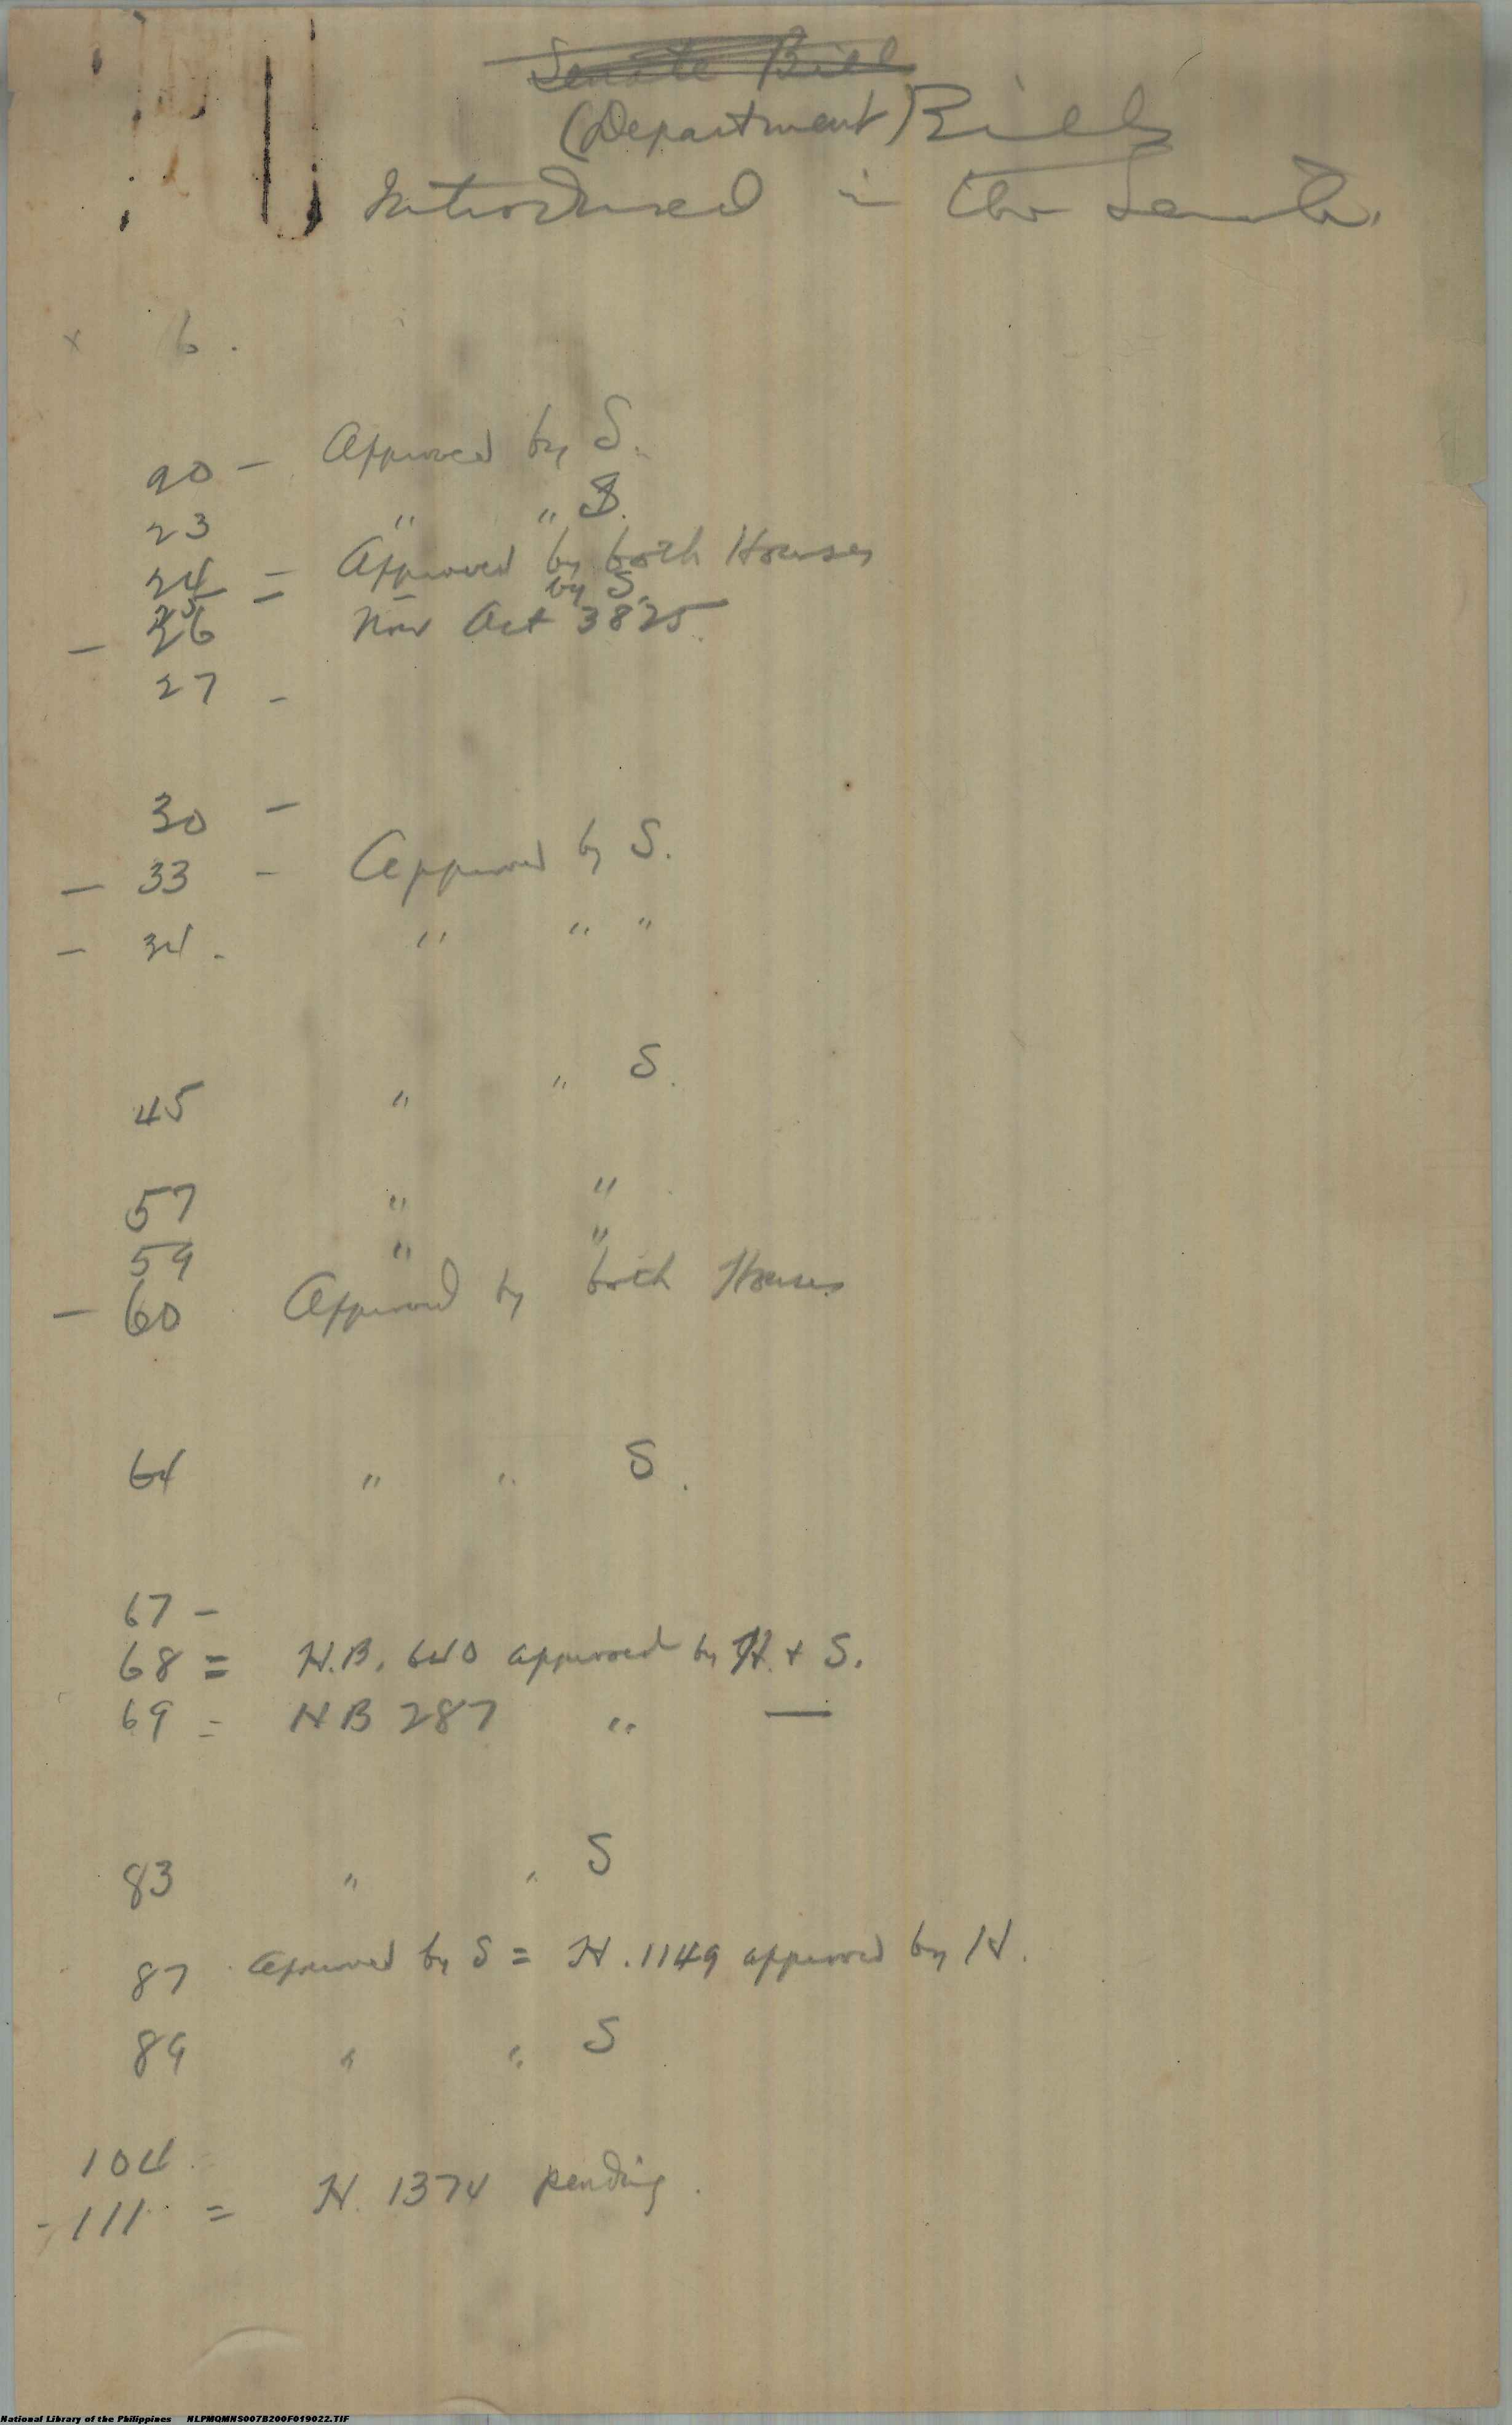 Senate Bill
(Department) Bills
Introduced in the Senate.
x 6.
20 - Approved by S.
23 " " S.
24 = Approved by both Houses
25 = by S.
- 26 Now Act 3825.
27 -
30 -
- 33 - Approved by S.
- 34. " " "
45 " " S.
57 " "
59 " "
- 60 Approved by both Houses
64 " " S.
67 -
68 = H.B. 640 approved by H. + S.
69 = H B 287 " —
83 " " S
87 Approved by S = H. 1149 approved by H.
89 " " S
104.
- 111 = H. 1374 pending.
National Library of the Philippines NLPMQMNS007B200F019022.TIF